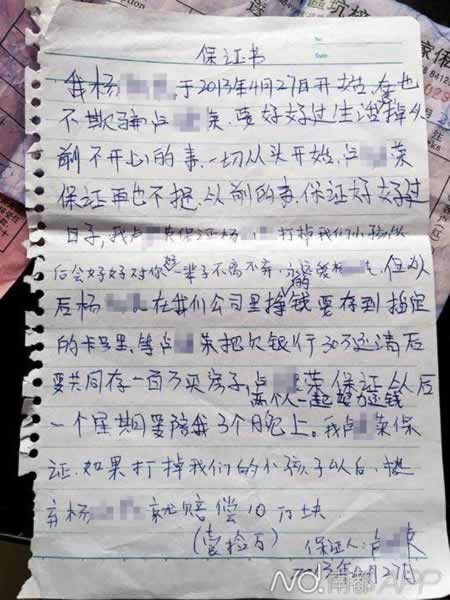 No.
Date
保证书
我杨 于2013年4月27日开始,在也
不欺骗卢 荣,要好好过生活掉从
前不开心的事,一切从头开始,卢 荣
保证再也不提,从前的事,保证好好过
日子,我卢 荣保证杨 打掉我们小孩
后会好好对你一辈子不离不弃,的 但从
后杨 在我们公司里挣钱要存到指定
的卡里,等卢 荣把欠银行30万还清后
要共同存一百万买房子,卢 荣保证从后
两个人一起努力还钱
一个星期要陪我3个晚上。我卢 荣保
证,如果打掉我们的小孩子以后,抛
弃杨 就赔偿10万块
(壹拾万) 保证人:卢 荣
2013年4月27日
NO.南都APP